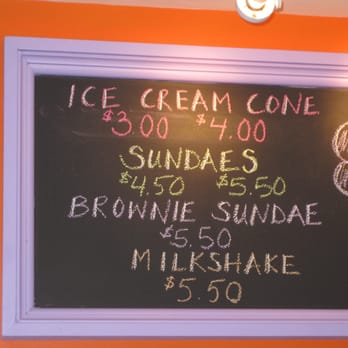 ICE CREAM CONE
$3.00 $4.00
SUNDAES
$4.50 $5.50
BROWNIE SUNDAE
$5.50
MILKSHAKE
$5.50